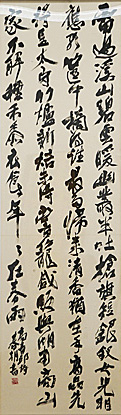 雷過溪山碧雲暖幽叢半吐槍旗短銀釵女兒相
應歌筐中摘得誰最多歸來清香猶在手高品先
將呈太守竹爐新焙未得嘗籠盛販與湖南商山
家不解種禾黍衣食年々在春雨